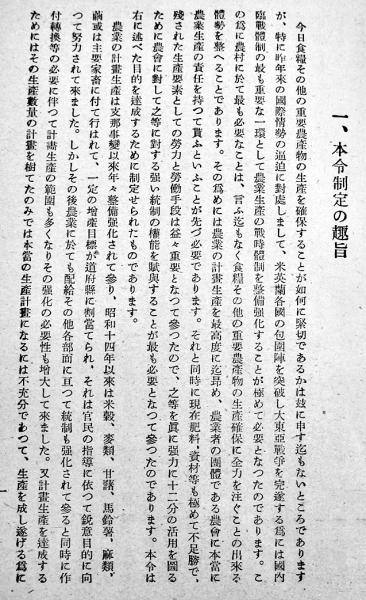 一、本令制定の趣旨
今日食糧その他の重要農產物の生產を確保することが如何に緊切であるかは玆に申す迄もないところであります
が、特に昨年來の國際情勢の逼迫に對處しまして、米英蘭各國の包圍陣を突破し大東亞戰爭を完遂する爲には國內
臨戰體制の最も重要な一環として農業生產の戰時體制を整備强化することが極めて必要となつたのであります。こ
の爲に農村に於て最も必要なことは、言ふ迄もなく食糧その他の重要農產物の生產確保に全力を注ぐことの出來る
體勢を整へることであります。その爲めには農業の計畫生產を最高度に迄昻め、農業者の團體である農會に本當に
農業生產の責任を持つて貰ふといふことが先づ必要であります。それと同時に現在肥料、資材等も極めて不足勝で、
殘された生產要素としての勞力と勞働手段は益々重要となつて參つたので、之等を眞に强力に十二分の活用を圖る
ために農會に對して之等に對する强い統制の權能を賦與することが最も必要となつて參つたのであります。本令は
右に述べた目的を達成するために制定せられたものであります。
農業の計畫生產は支那事變以來年々整備强化されて參り、昭和十四年以來は米穀、麥類、甘藷、馬鈴薯、麻類、
繭或は主要家畜に付て行はれて、一定の增產目標が道府縣に割當てられ、それは官民の指導に依つて銳意目的に向
つて努力されて來ました。しかしその後農業に於ても配給その他各部面に亙つて統制も强化されて參ると同時に作
付轉換等の必要に伴つて計畫生產の範圍も多くなりその强化の必要性も增大して來ました。又計畫生產を達成する
ためにはその生產數量の計畫を樹てたのみでは本當の生產計畫になるには不充分であつて、生產を成し遂げる爲に
一